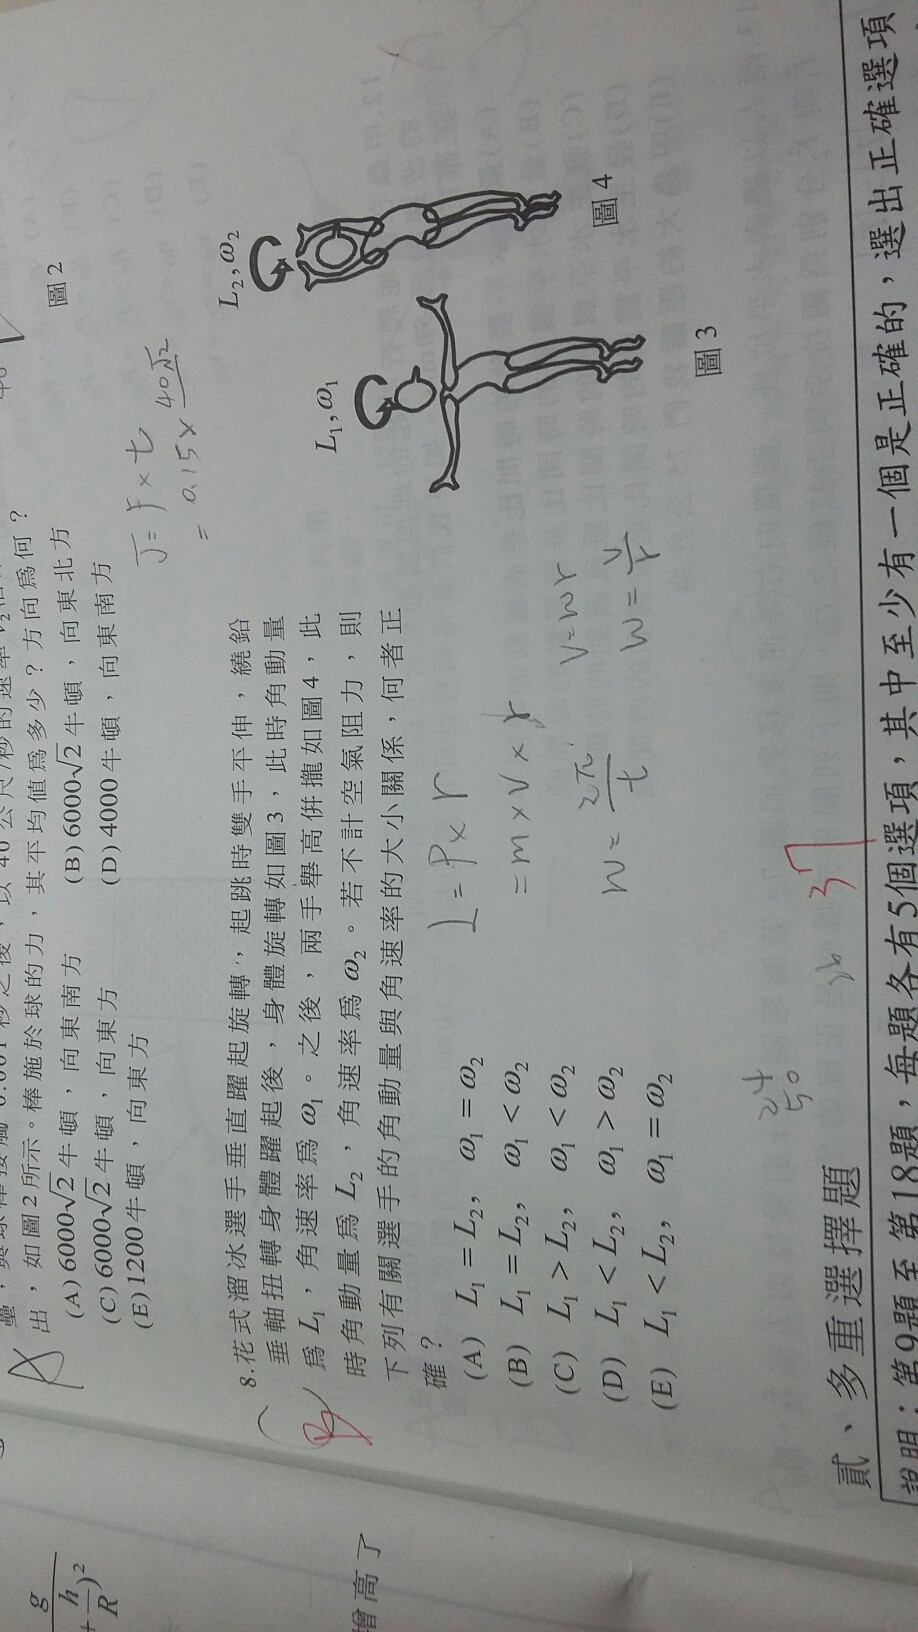 出，如圖2所示。棒施於球的力，其平均值為多少？方向為何？
(A) 6000√2牛頓，向東南方
(B) 6000√2牛頓，向東北方
(C) 6000√2牛頓，向東方
(D) 4000牛頓，向東南方
(E) 1200牛頓，向東方
圖2
J=F×t
= 0.15× 40√2
8.花式溜冰選手垂直躍起旋轉，起跳時雙手平伸，繞鉛
垂軸扭轉身體躍起後，身體旋轉如圖3，此時角動量
為L₁，角速率為ω₁。之後，兩手舉高併攏如圖4，此
時角動量為L₂，角速率為ω₂。若不計空氣阻力，則
下列有關選手的角動量與角速率的大小關係，何者正
確？
(A) L₁=L₂, ω₁=ω₂
(B) L₁=L₂, ω₁<ω₂
(C) L₁>L₂, ω₁<ω₂
(D) L₁<L₂, ω₁>ω₂
(E) L₁<L₂, ω₁=ω₂
L₁, ω₁
圖3
L₂, ω₂
圖4
L=P×r
=m×V×r
W=2π/t
V=Wr
W=V/r
B
A
24
50
37
貳、多重選擇題
說明：第9題至第18題，每題各有5個選項，其中至少有一個是正確的，選出正確選項
增高了